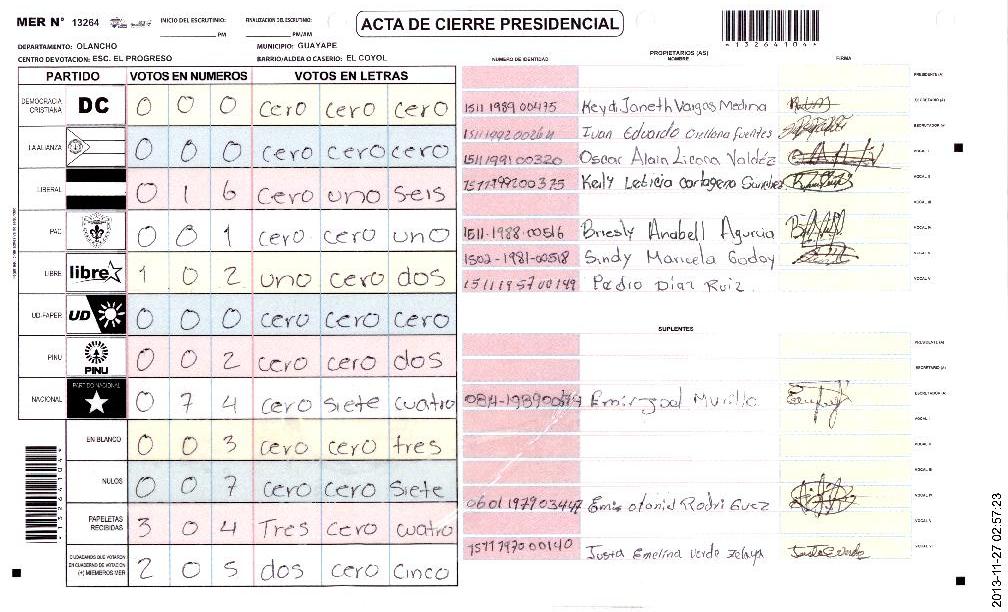 MER N° 13264
INICIO DEL ESCRUTINIO: PM
FINALIZACION DEL ESCRUTINIO: PM/AM
ACTA DE CIERRE PRESIDENCIAL
*13264104*
DEPARTAMENTO: OLANCHO
MUNICIPIO: GUAYAPE
CENTRO DE VOTACION: ESC. EL PROGRESO
BARRIO/ALDEA O CASERIO: EL COYOL
PARTIDO VOTOS EN NUMEROS VOTOS EN LETRAS
DEMOCRACIA CRISTIANA DC 0 0 0 cero cero cero
LA ALIANZA 0 0 0 cero cero cero
LIBERAL 0 1 6 cero uno seis
PAC 0 0 1 cero cero uno
LIBRE libre 1 0 2 uno cero dos
UD-FAPER UD 0 0 0 cero cero cero
PINU PINU 0 0 2 cero cero dos
NACIONAL PARTIDO NACIONAL 0 7 4 cero siete cuatro
EN BLANCO 0 0 3 cero cero tres
NULOS 0 0 7 cero cero siete
PAPELETAS RECIBIDAS 3 0 4 Tres cero cuatro
CIUDADANOS QUE VOTARON EN CUADERNO DE VOTACION (+) MIEMBROS MER 2 0 5 dos cero cinco
PROPIETARIOS (AS)
NUMERO DE IDENTIDAD NOMBRE FIRMA
PRESIDENTE (A)
1511 1989 00475 Keydi Janeth Vargas Medina SECRETARIO (A)
Ivan Eduardo Orellana fuentes ESCRUTADOR (A)
1511 1991 00320 Oscar Alain Licona Valdéz VOCAL I
Keily Leticia cartagena Sanchez VOCAL II
VOCAL III
1511-1988-00516 Briesly Anabell Agurcia VOCAL IV
1502-1981-00518 Sindy Maricela Godoy VOCAL V
1511 1957 00149 Pedro Díaz Ruiz. VOCAL VI
SUPLENTES
PRESIDENTE (A)
SECRETARIO (A)
Murillo ESCRUTADOR (A)
VOCAL I
VOCAL II
VOCAL III
0601 1979 03447 VOCAL IV
VOCAL V
1511 1970 00140 Justa Emelina Verde Zelaya VOCAL VI
2013-11-27 02:57:23